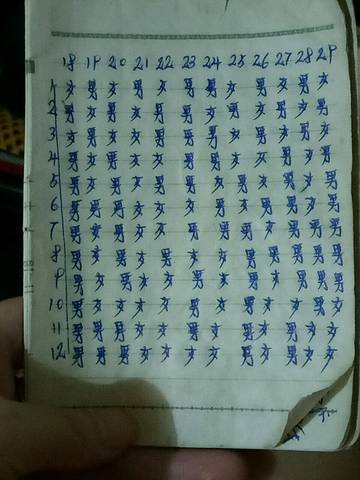 18 19 20 21 22 23 24 25 26 27 28 29
1 女 男 女 男 女 男 男 女 男 女 男 女
2 男 女 男 女 女 男 女 男 女 女 女
3 女 男 女 女 男 女 男 女 女 女 男 女
4 男 女 男 女 女 女 女 女 女 男 女 男
5 男 男 女 男 女 男 女 女 女 男 女 男
6 男 男 男 女 女 女 男 女 男 男 女 男
7 男 女 男 女 女 男 男 男 女 男 男 男
8 男 女 男 女 男 女 女 男 男 男 男 男
9 男 女 男 女 女 男 女 男 女 男 男 男
10 男 女 女 女 女 男 女 男 女 女 男 男
11 男 男 男 女 女 女 女 男 女 男 女 女
12 男 男 男 女 女 女 女 男 女 男 女 女